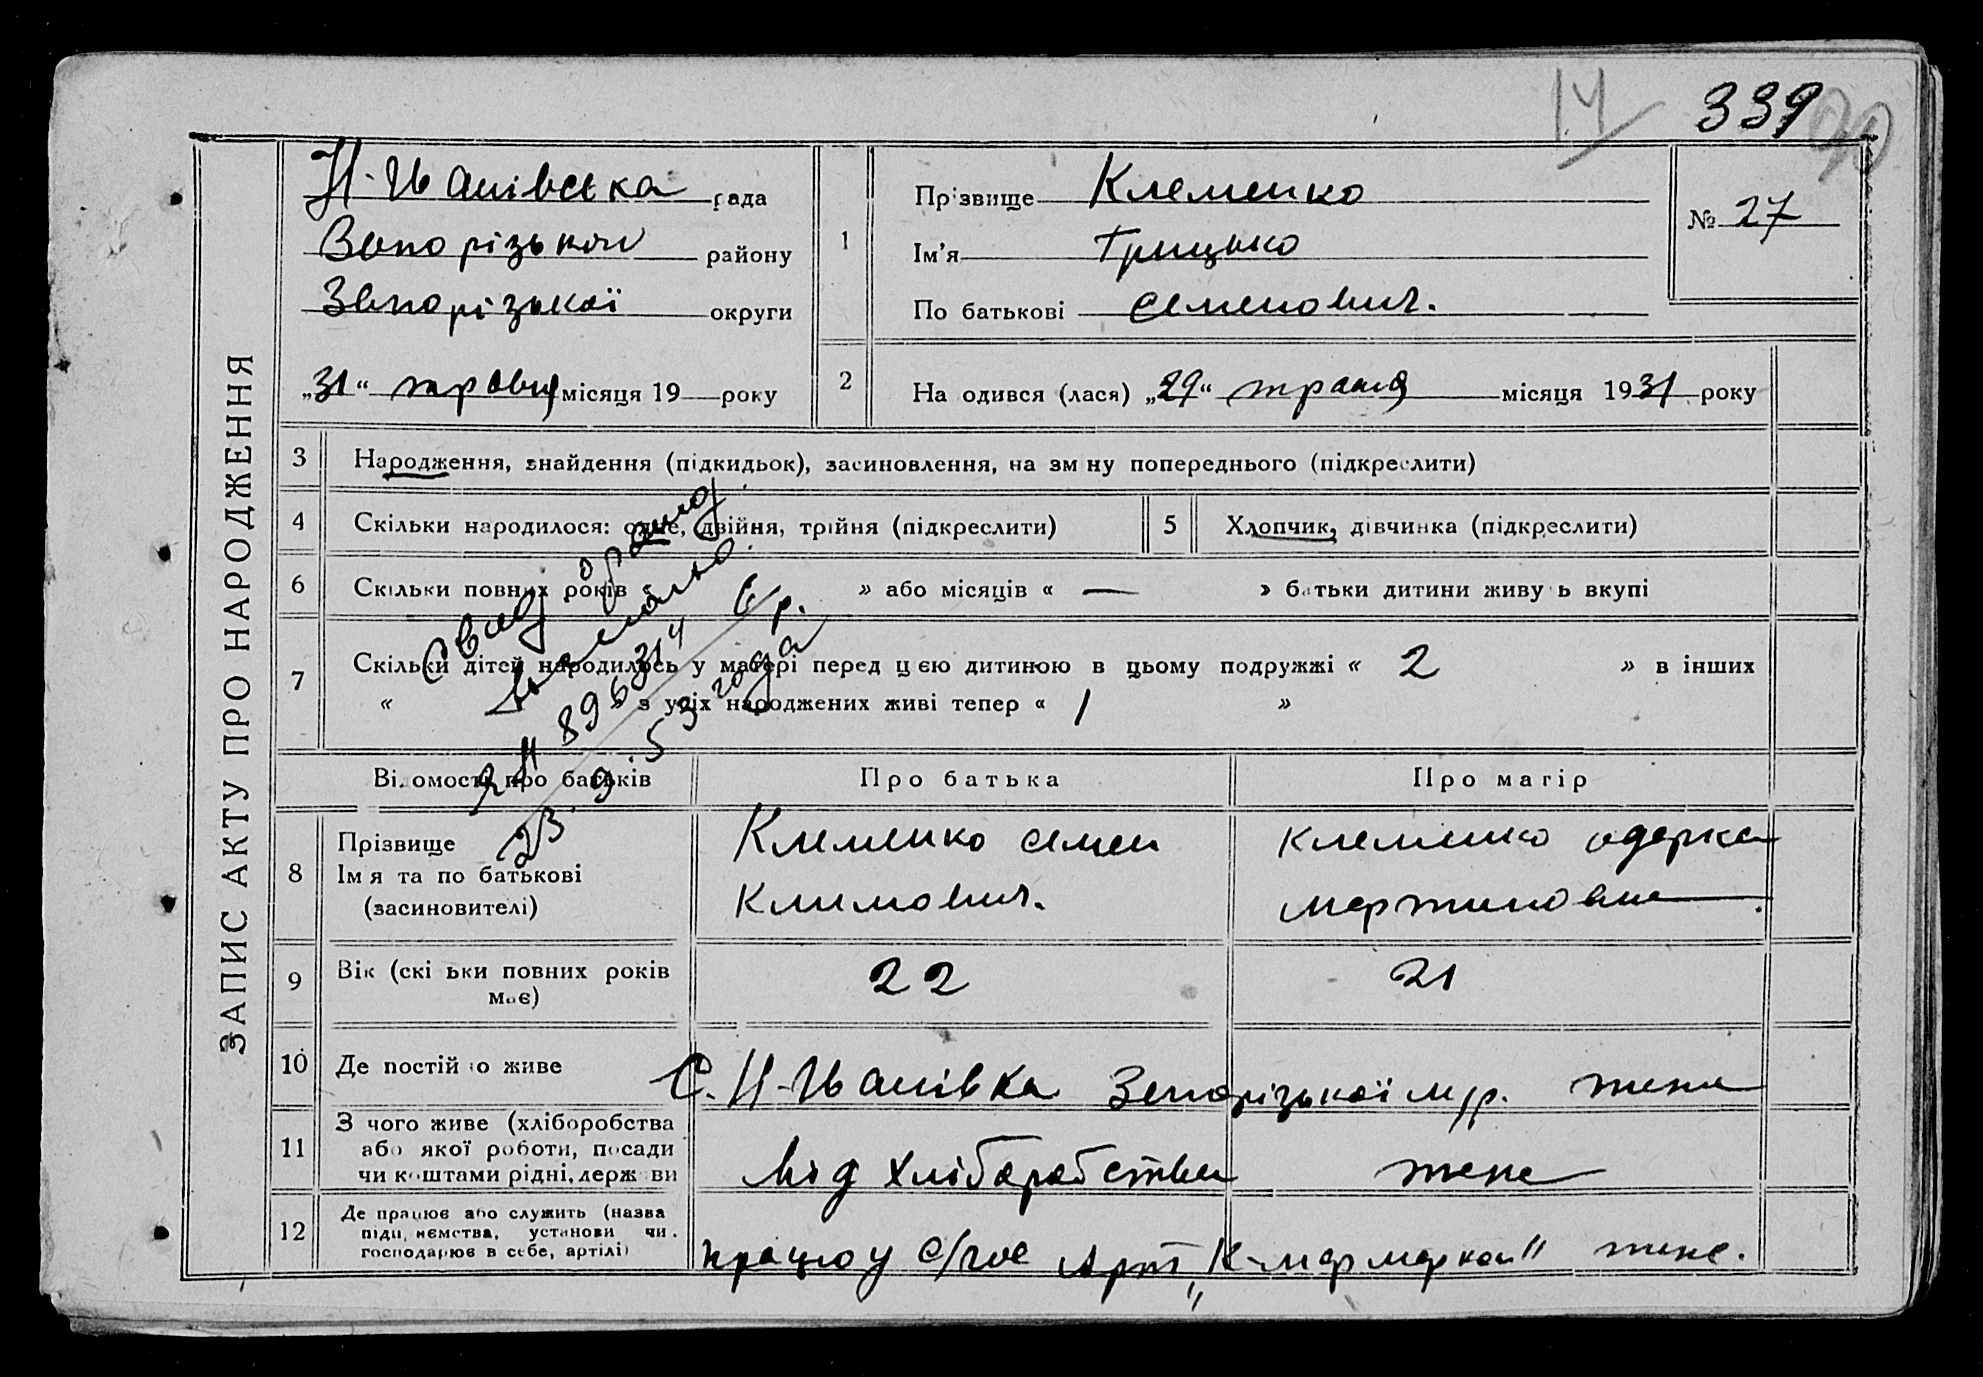 14 339
ЗАПИС АКТУ ПРО НАРОДЖЕННЯ
Н-Іванівська рада
Запорізького району
Запорізької округи
„31“ травня місяця 19 року
1
Прізвище Клеменко
Ім'я Грицько
По батькові Семенович.
№ 27
2 На одився (лася) „29“ травня місяця 1931 року
3 Народження, знайдення (підкидьок), засиновлення, на зм ну попереднього (підкреслити)
4 Скільки народилося: одне, двійня, трійня (підкреслити)
5 Хлопчик, дівчинка (підкреслити)
6 Скільки повних років » або місяців « — » батьки дитини живу ь вкупі
7 Скільки дітей народилось у матері перед цією дитиною в цьому подружжі « 2 » в інших
« » з усіх народжених живі тепер « 1 »
23.9.53 года
Відомості про батьків Про батька Про матір
8 Прізвище
Ім я та по батькові
(засиновителі)
Клеменко Семен
Климович.
Клеменко Одарка
Мартиновна
9 Вік (скі ьки повних років
має)
22 21
10 Де постій о живе
С. Н-Іванівка Запорізької м/р. теж
11 З чого живе (хліборобства
або якої роботи, посади
чи коштами рідні, держ ви
від хліборобства теж
12 Де працює або служить (назва
підп ємства, установи чи
господарює в себе, артілі)
працює у с/гос Арт „К-Мар